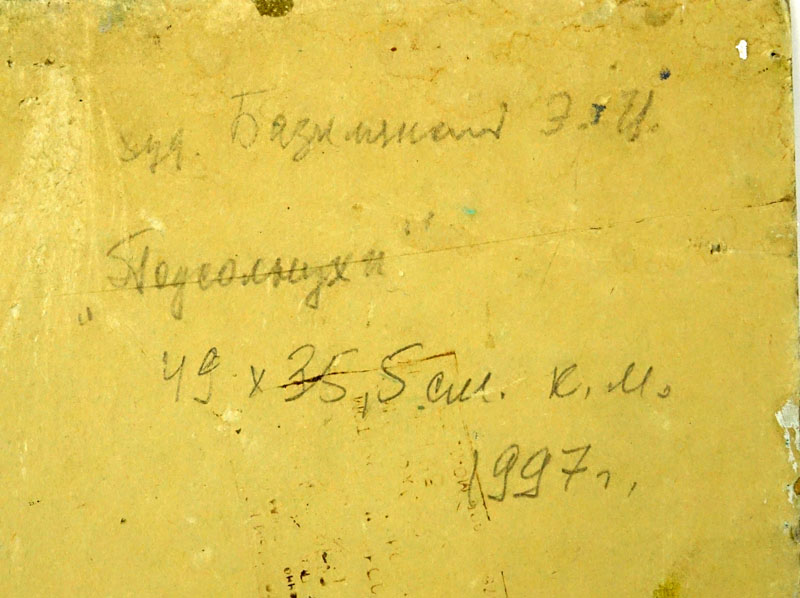 худ. Базилянский Э. И.
„Подсолнухи"
49 х 35,5 см. к. м.
1997 г.